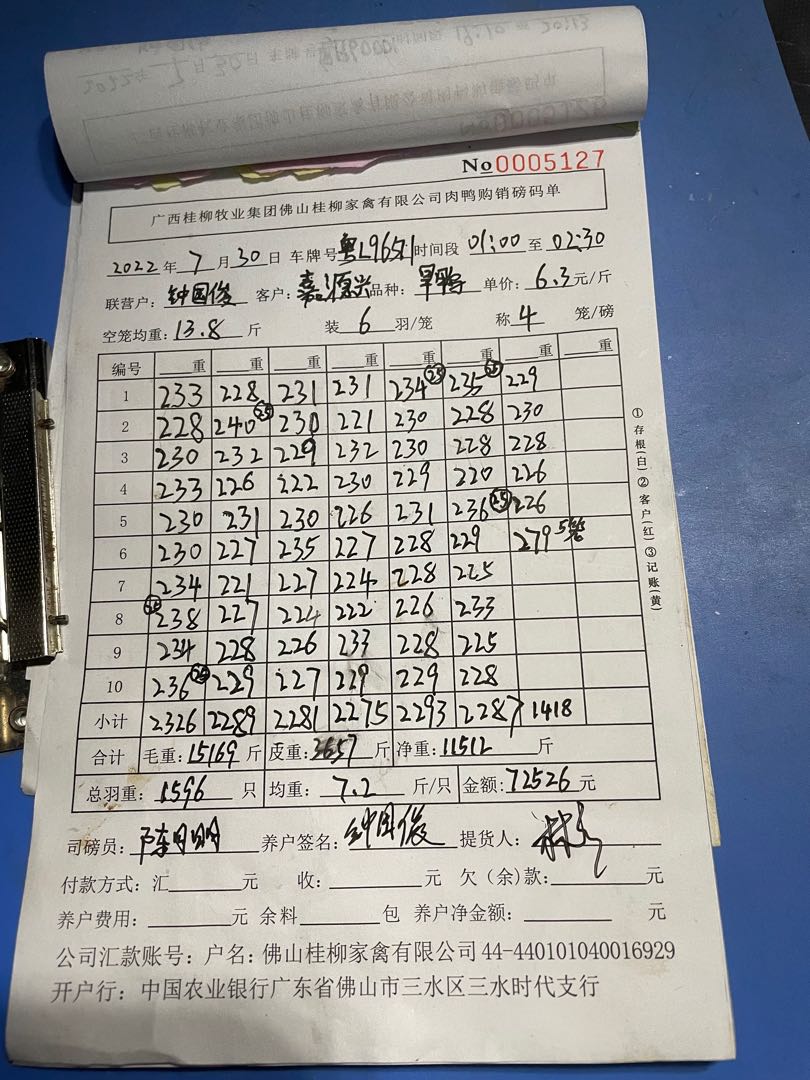 No 0005127
广西桂柳牧业集团佛山桂柳家禽有限公司肉鸭购销磅码单
2022年7月30日 车牌号粤L96571时间段 01:00 至 02:30
联营户:钟国俊 客户:嘉源兴 品种:旱鸭 单价:6.3元/斤
空笼均重:13.8斤 装6羽/笼 称4笼/磅
编号 重 重 重 重 重 重 重 重
1 233 228 231 231 234 ㉕ 235 ㉕ 229
2 228 240 ㉕ 230 221 230 228 230
3 230 232 229 232 230 228 228
4 233 226 222 230 229 220 226
5 230 231 230 226 231 236 ㉕ 226
6 230 227 235 227 228 229 279 5笼
7 234 221 227 224 228 225
8 ㉕ 238 227 224 222 226 233
9 234 228 226 233 228 225
10 236 ㉕ 229 227 229 229 228
小计 2326 2289 2281 2275 2293 2287 1418
合计 毛重:15169斤 皮重:3657斤 净重:11512斤
总羽重:1596只 均重:7.2斤/只 金额:72526元
司磅员: 养户签名:钟国俊 提货人:
付款方式:汇 元 收: 元 欠(余)款: 元
养户费用: 元 余料 包 养户净金额: 元
公司汇款账号:户名:佛山桂柳家禽有限公司44-440101040016929
开户行:中国农业银行广东省佛山市三水区三水时代支行
①存根(白)②客户(红)③记账(黄)